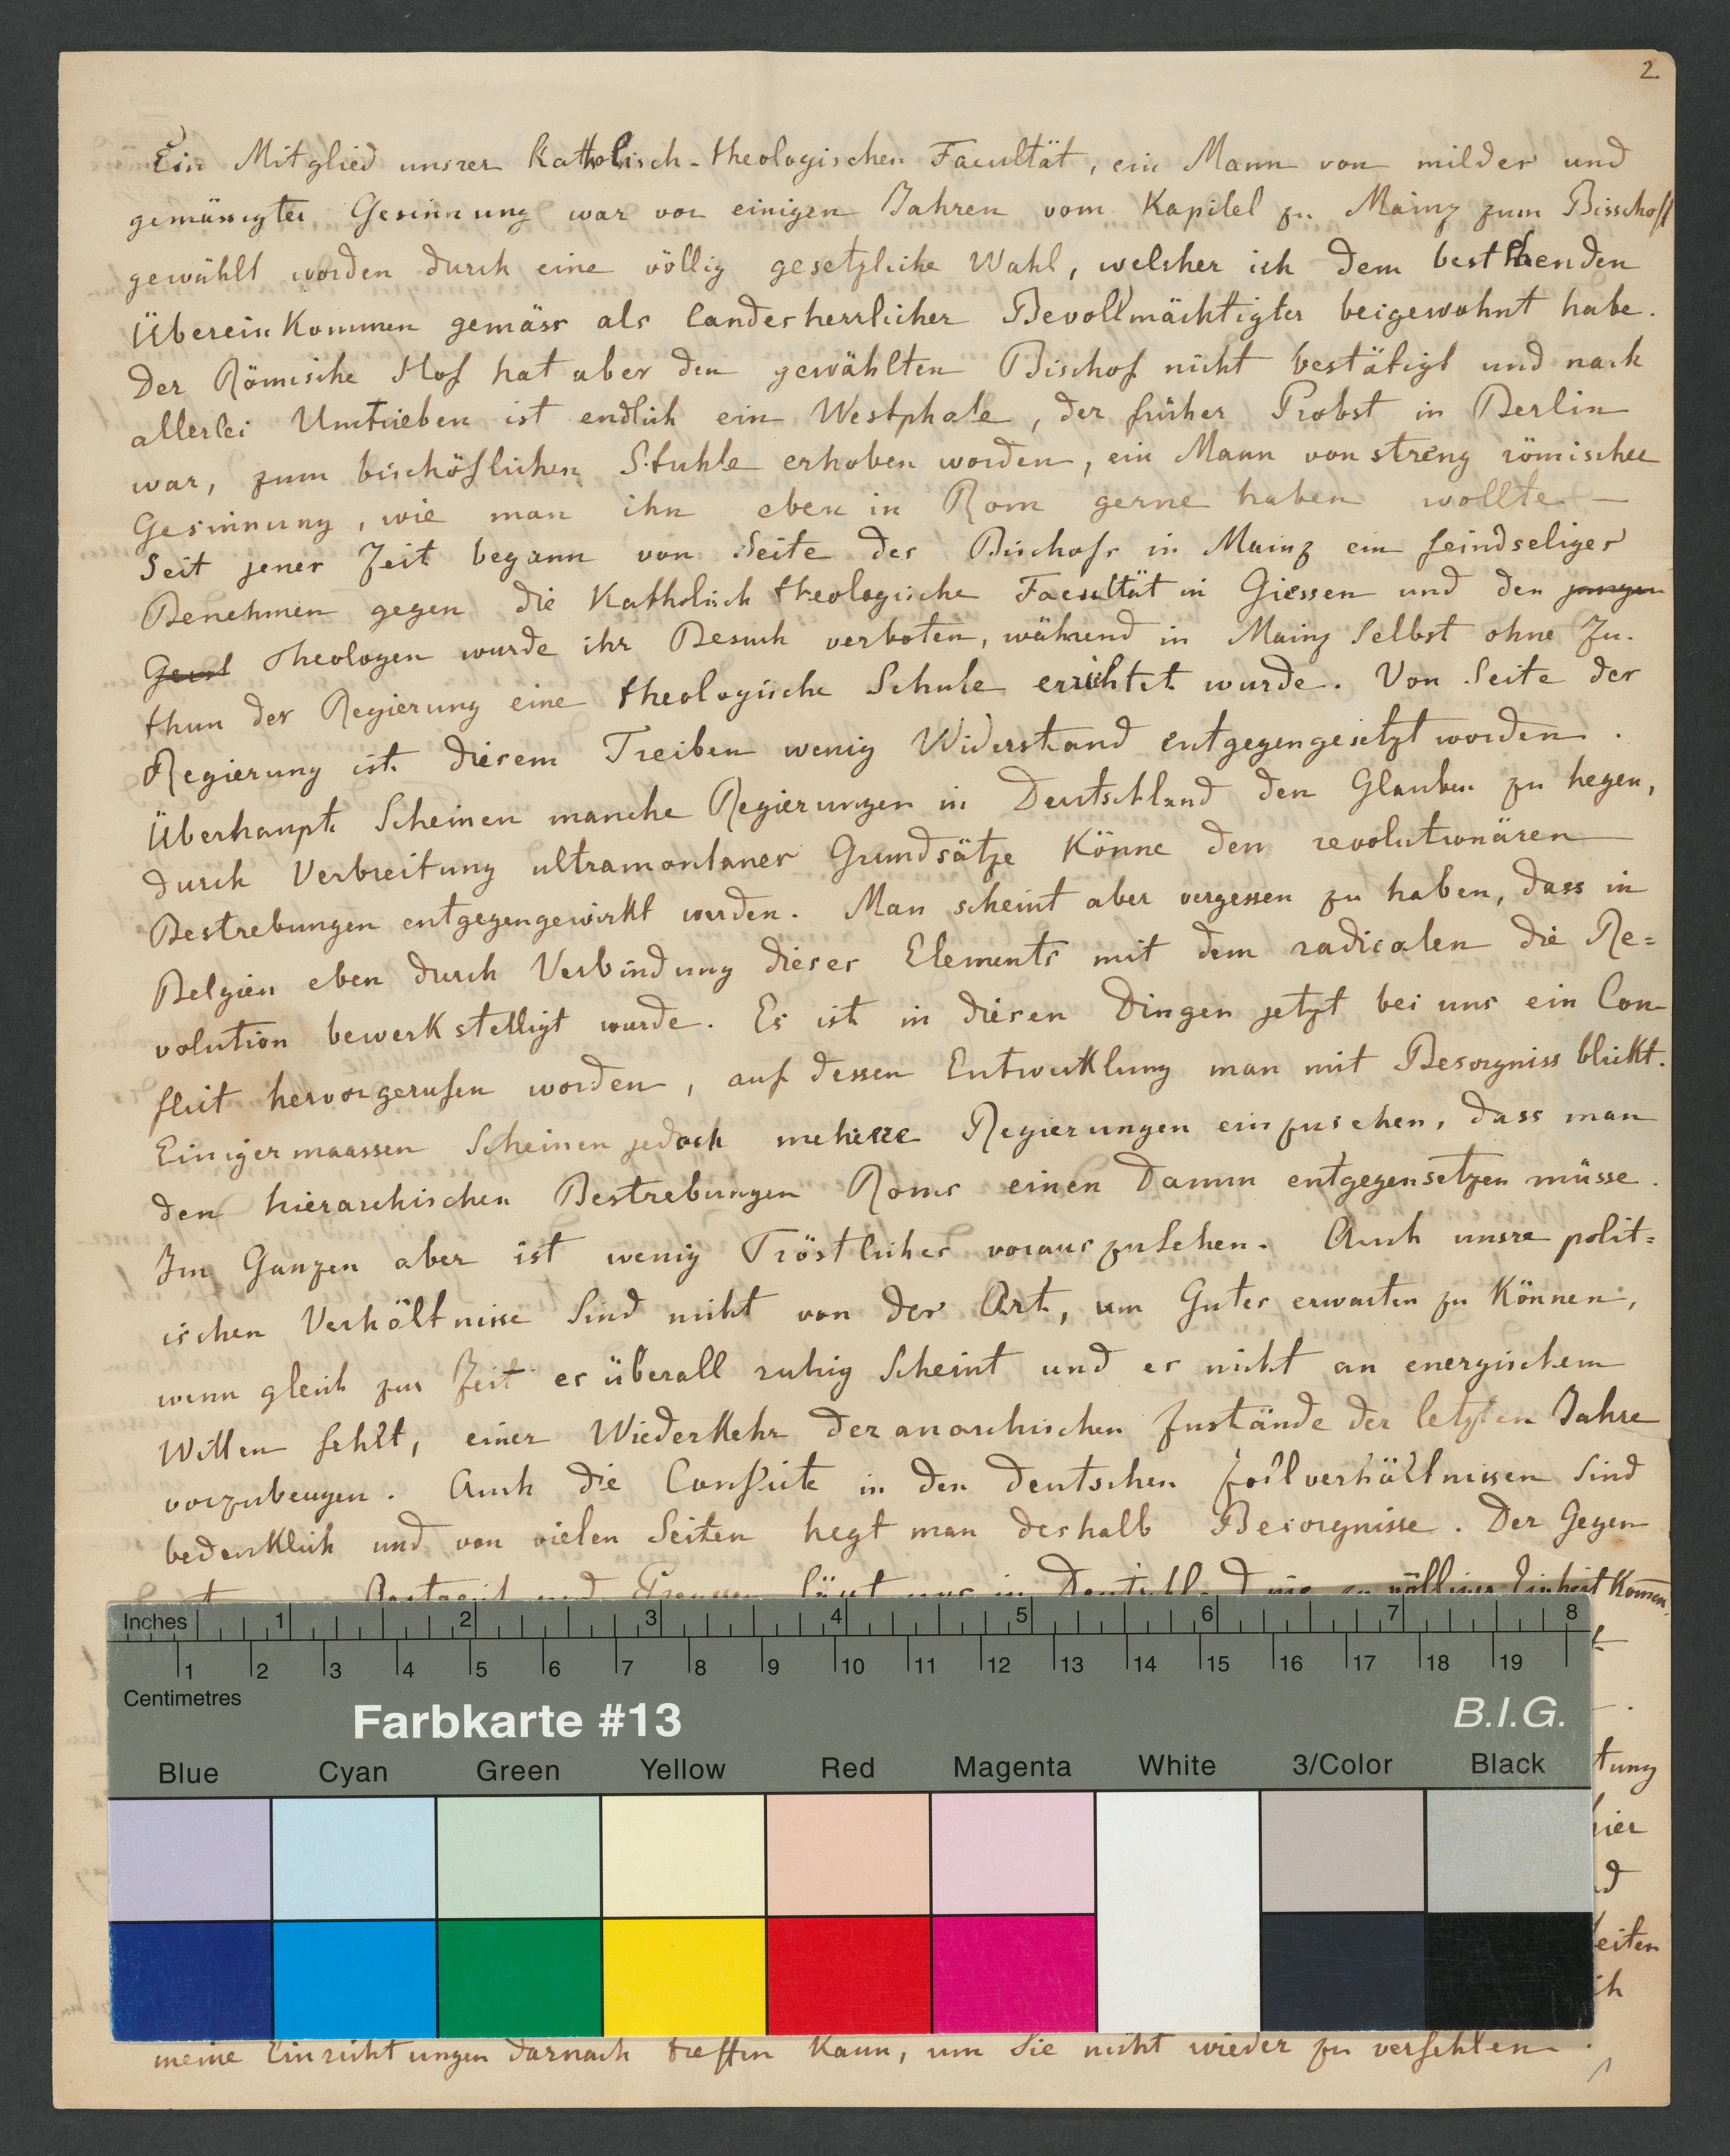 2
Ein Mitglied unsrer Katholisch-theologischen Facultät, ein Mann von milder und
gemässigter Gesinnung war vor einigen Jahren vom Kapitel zu Mainz zum Bisschoff
gewählt worden durch eine völlig gesetzliche Wahl, welcher ich dem bestehenden
Übereinkommen gemäss als landesherrlicher Bevollmächtigter beigewohnt habe.
Der Römische Hof hat aber den gewählten Bischof nicht bestätigt und nach
allerlei Umtrieben ist endlich ein Westphale, der früher Probst in Berlin
war, zum bischöflichen Stuhle erhoben worden, ein Mann von streng römischer
Gesinnung, wie man ihn eben in Rom gerne haben wollte —
Seit jener Zeit begann von Seite des Bischofs in Mainz ein feindseliges
Benehmen gegen die Katholisch theologische Facultät in Giessen und den jungen
Theologen wurde ihr Besuch verboten, während in Mainz selbst ohne Zu-
thun der Regierung eine theologische Schule errichtet wurde. Von Seite der
Regierung ist diesem Treiben wenig Widerstand entgegengesetzt worden.
Überhaupt scheinen manche Regierungen in Deutschland den Glauben zu hegen,
durch Verbreitung ultramontaner Grundsätze könne den revolutionären
Bestrebungen entgegengewirkt werden. Man scheint aber vergessen zu haben, dass in
Belgien eben durch Verbindung dieses Elements mit dem radicalen die Re=
volution bewerkstelligt wurde. Es ist in diesen Dingen jetzt bei uns ein Con-
flict hervorgerufen worden, auf dessen Entwicklung man mit Besorgniss blickt.
Einigermaassen scheinen jedoch mehrere Regierungen einzusehen, dass man
den hierarchischen Bestrebungen Roms einen Damm entgegensetzen müsse.
Im Ganzen aber ist wenig Tröstliches vorauszusehen. Auch unsre polit=
ischen Verhältnisse sind nicht von der Art, um Gutes erwarten zu können,
wenn gleich zur Zeit es überall ruhig scheint und es nicht an energischem
Willen fehlt, einer Wiederkehr der anarchischen Zustände der letzten Jahre
vorzubeugen. Auch die Conflicte in den deutschen Zollverhältnissen sind
bedenklich und von vielen Seiten hegt man deshalb Besorgnisse. Der Gegen
und Preussen lässt uns in Deutschland nie zu völliger Einheit komen,
tung
hier
eiten
meine Einrichtungen darnach treffen kann, um Sie nicht wieder zu verfehlen.
Inches 1 2 3 4 5 6 7 8
1 2 3 4 5 6 7 8 9 10 11 12 13 14 15 16 17 18 19
Centimetres
Farbkarte #13 B.I.G.
Blue Cyan Green Yellow Red Magenta White 3/Color Black